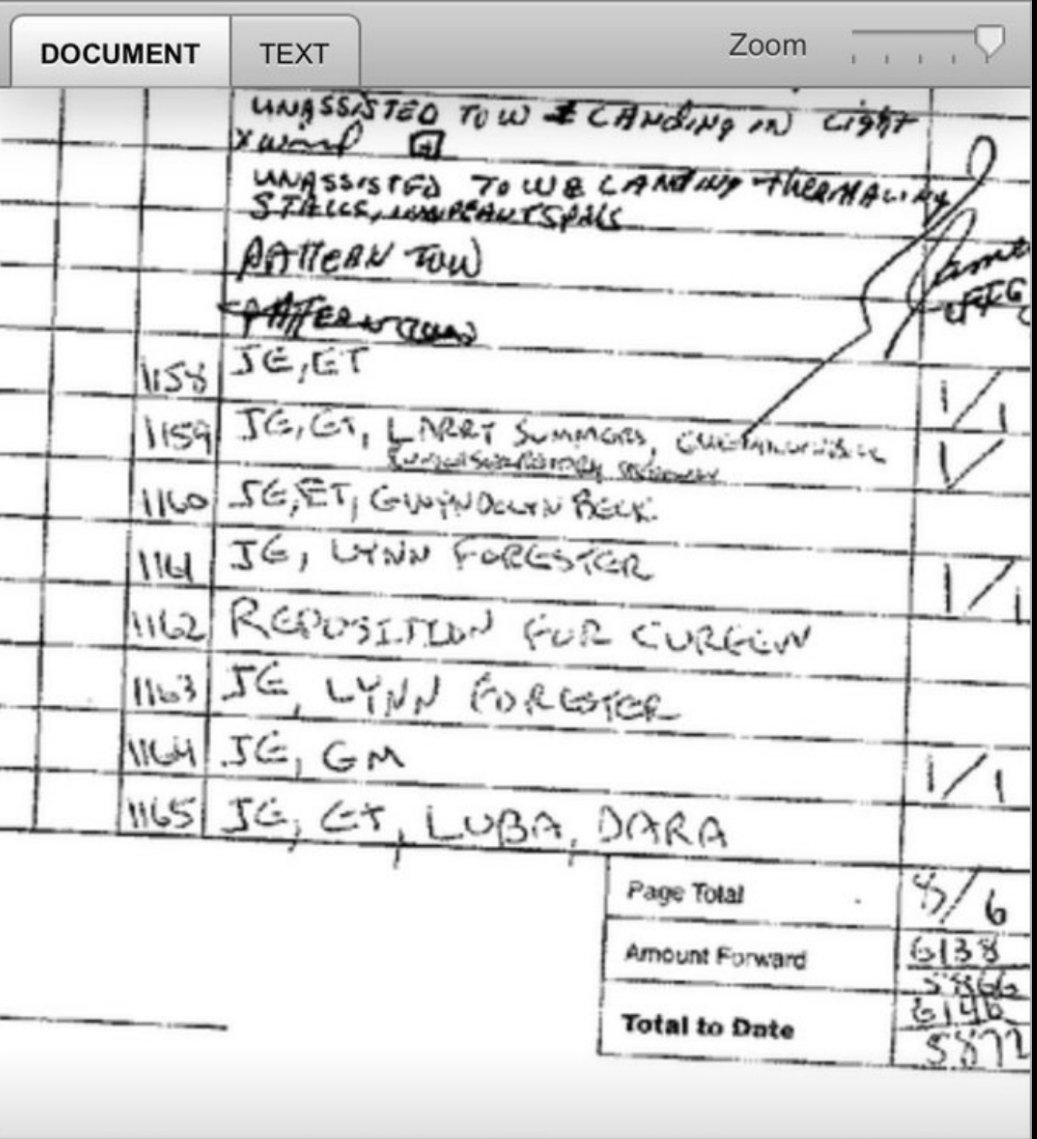 DOCUMENT
TEXT
Zoom
UNASSISTED TOW & LANDING IN LIGHT
X wind
UNASSISTED TOW & LANDING THERMALING
STALLS,
PATTERN TOW
PATTERN
1158 JE, ET 1/1
1159 JE, ET, LARRY SUMMERS,
1160 JE, ET, GWYNDOLYN BECK
1161 JE, LYNN FORESTER 1/1
1162 REPOSITION FOR CURFEW
1163 JE, LYNN FORESTER
1164 JE, GM 1/1
1165 JE, ET, LUBA, DARA
Page Total 8/6
Amount Forward 6138
5866
Total to Date 6146
5872